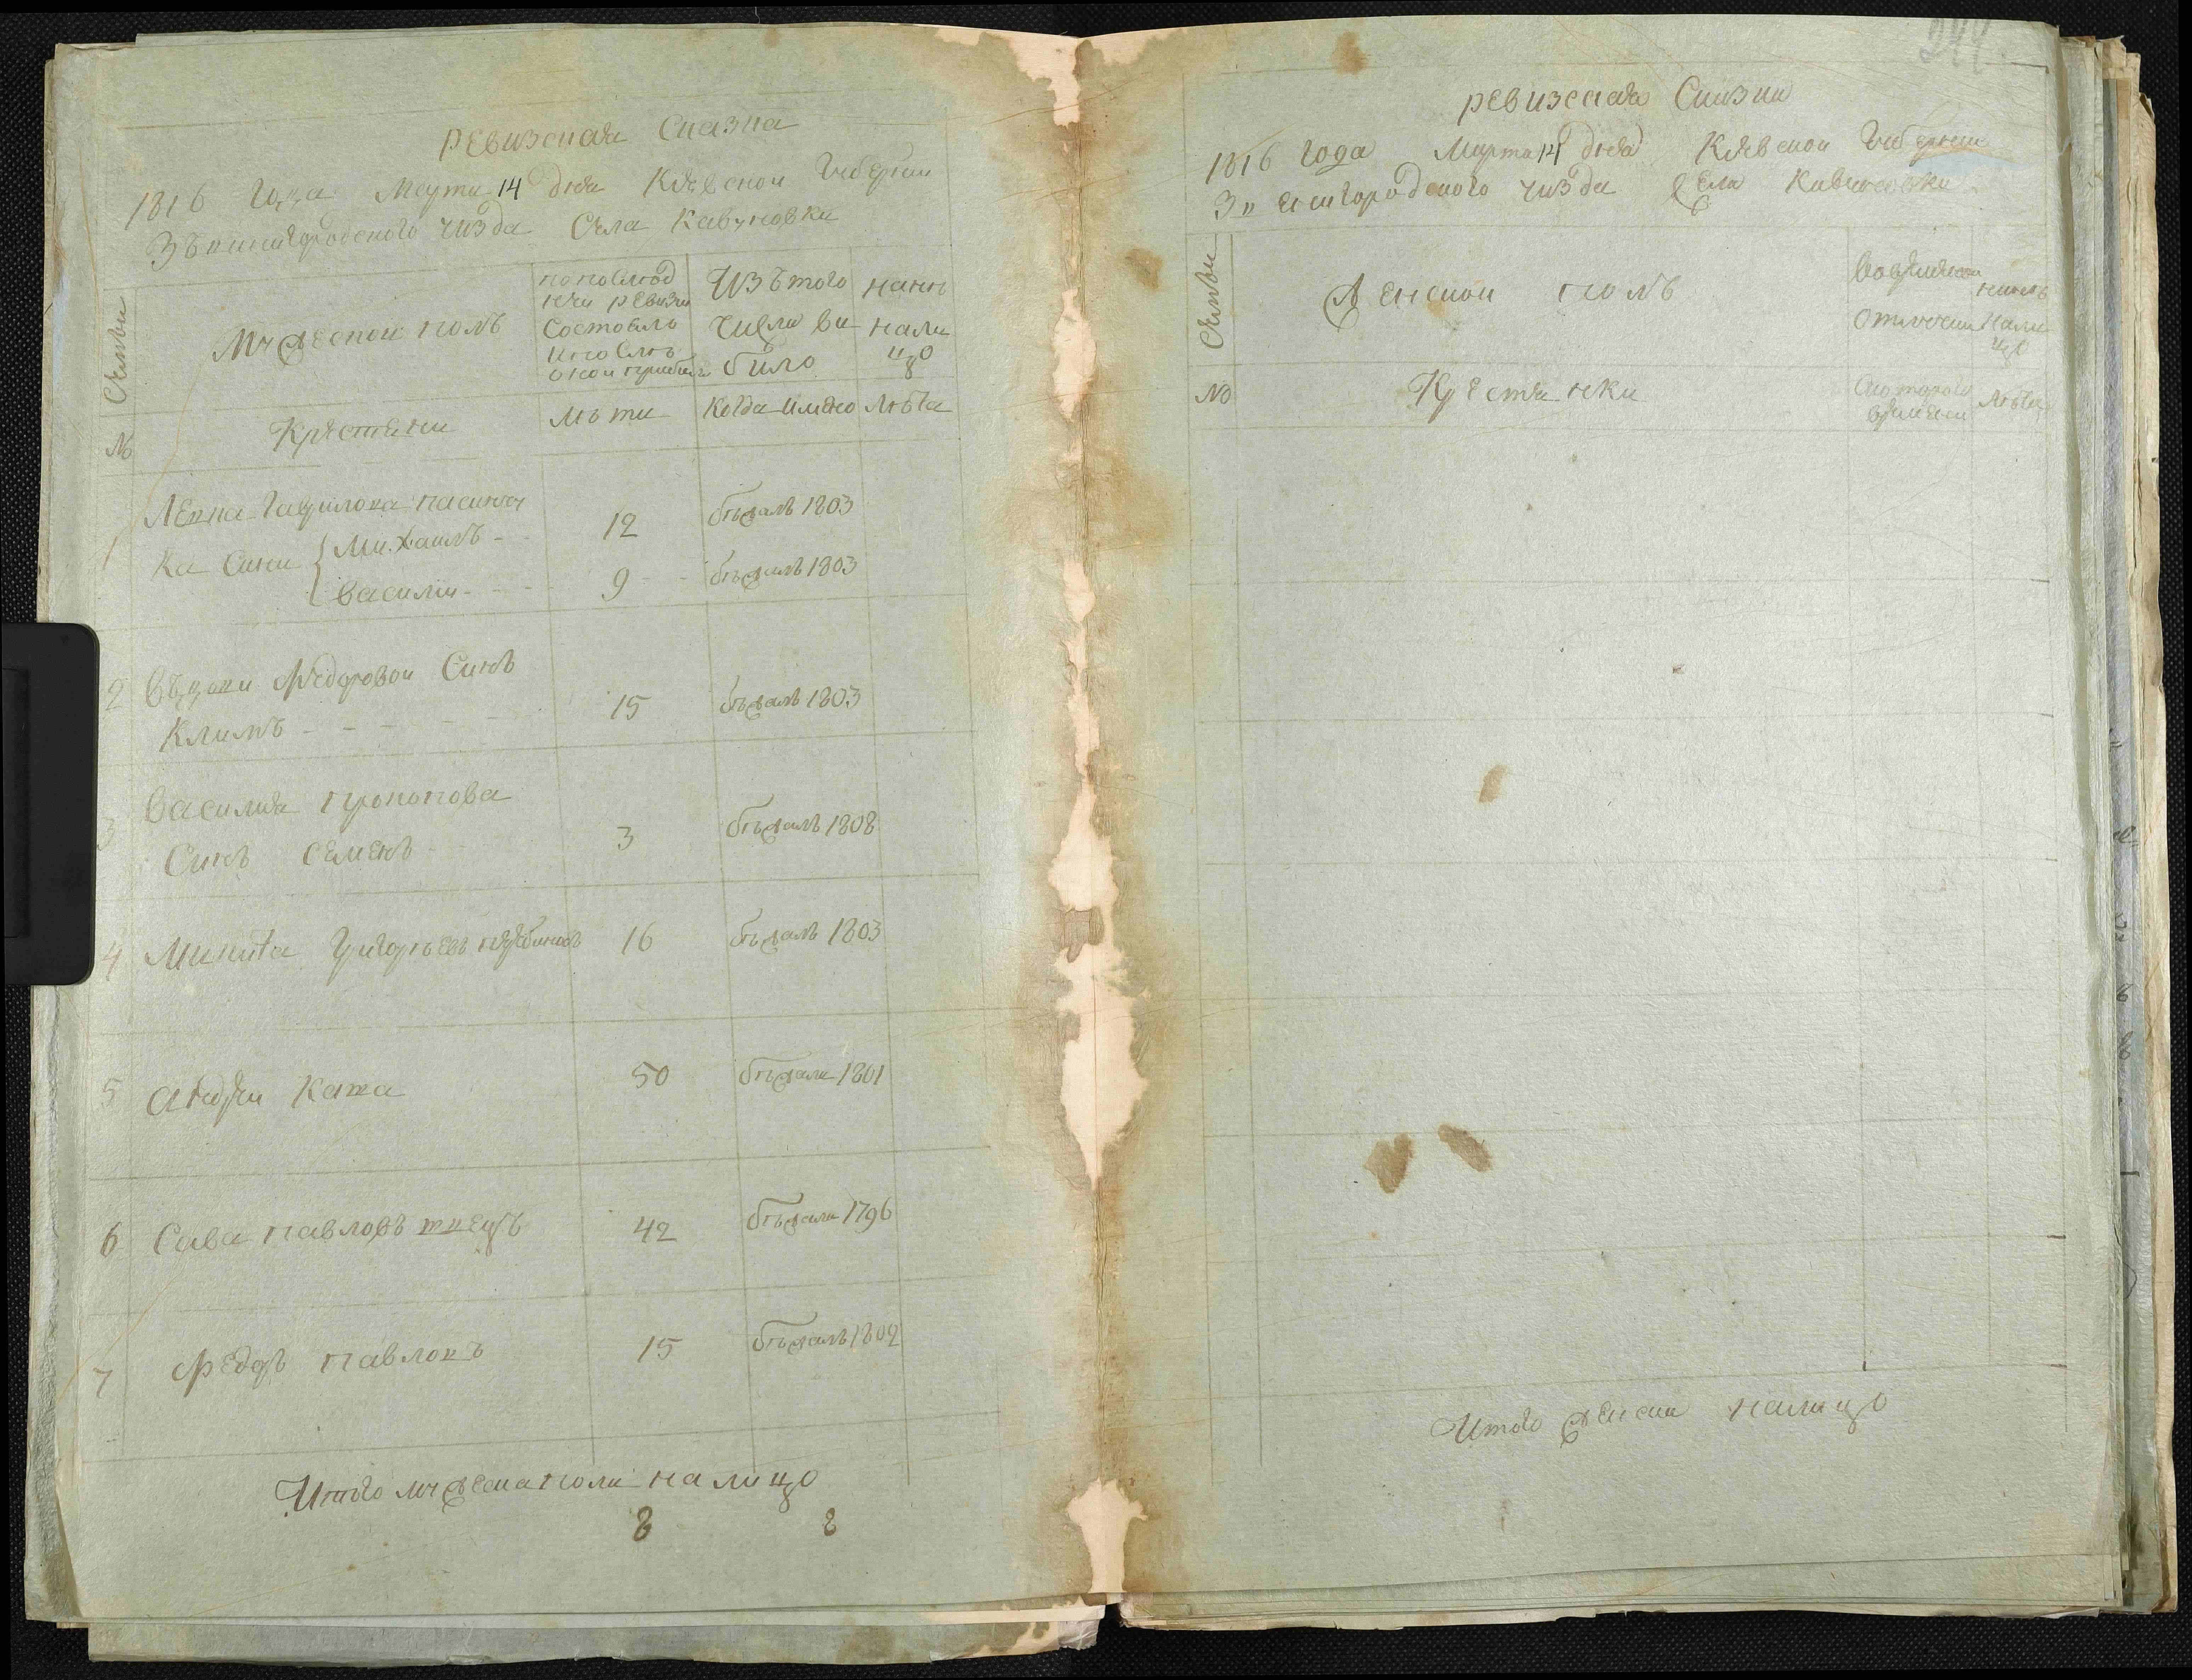 Ревизская Сказка
1816 Года Марта 14 дня Киевской Губернии
Звенигородского уизда Села Кавуновки
Семьи
№
Мужеской полъ
Крестяни
По последней ревизи состояло и после оной прибило
Лѣти
Изъ того числа вибило
Когда имено
Ныне на лицо
Лѣта
1
Ка Сини
Михаилъ
12
бѣжалъ 1803
Василий
9
бѣжалъ 1803
2
Федоровой Синъ
Климъ
15
бѣжалъ 1803
3
Василия Прокопова
Синъ Семенъ
3
бѣжалъ 1808
4
Микита Григорьевъ
16
бѣжалъ 1803
5
Андрей
50
бѣжали 1801
6
Сава Павловъ ткецъ
42
бѣжали 1796
7
Федоръ Павловъ
15
бѣжалъ 1802
Итого мужеска поли на лицо
8 8
244
Ревизская Сказка
1816 Года Марта 14 дня Киевской Губернии
Звенигородского уизда Села Кавуновки
Семьи
№
Женской полъ
Крестянки
Во временной отлучки
Ныне на лицо
Лѣта
Итого женска на лицо